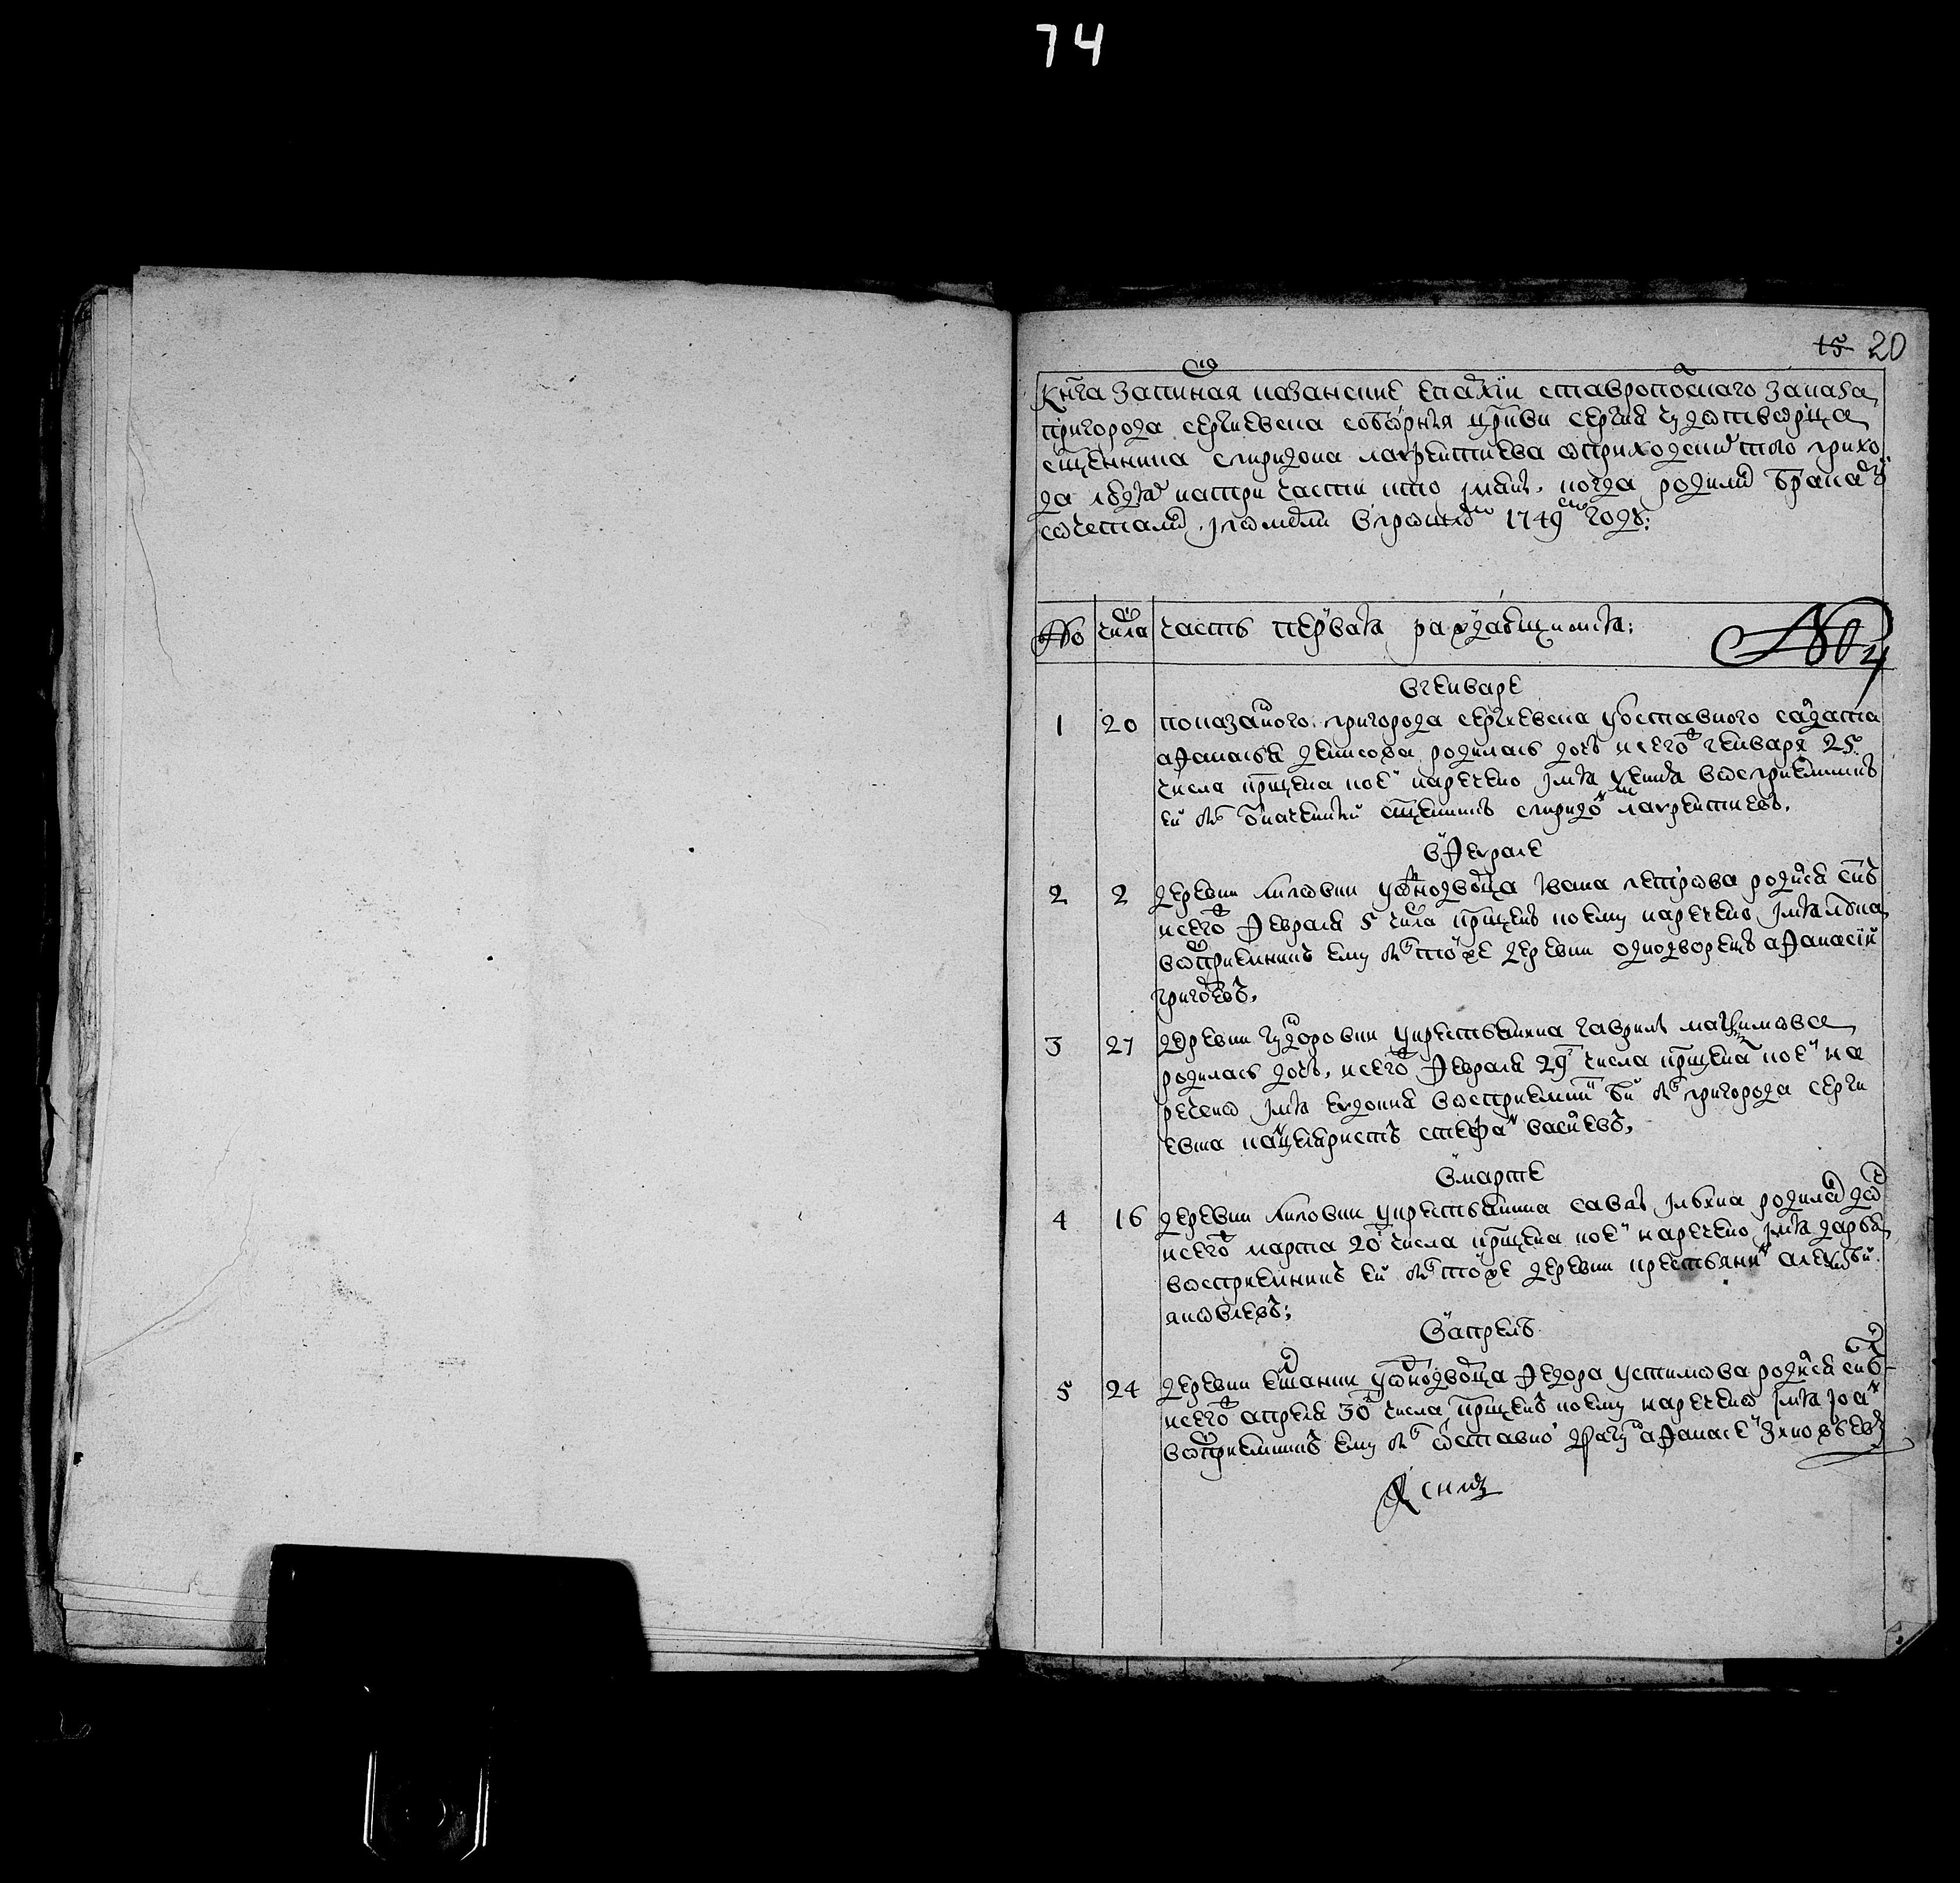 74
15 20
Книга записная казанские епархии ставропольского заказа
пригорода сергиевска соборныя церкви сергия чудотворца
священника спиридона лаврентиева оприходскихъ того прихо
да людяхъ натри части кто имяны когда родились браками
сочетались и померли впрошломъ 1749 году:
№ числа часть первая раждающихся:
вгенваре
1 20 показанного пригорода сергиевска уоставного салдата
афанасья денисова родилась дочь исего генваря 25
числа крещена коей наречено имя ксения восприемникъ
ей былъ означенный священникъ спиридонъ лаврентиевъ.
вфеврале
2 2 деревни липовки уоднодворца ивана петрова родился сынъ
исего февраля 5 числа крещенъ коему наречено имя лука
восприемникъ ему былъ тойже деревни однодворецъ афанасий
григорьевъ.
3 27 деревни чудоровки укрестьянина гаврилы максимова
родилась дочь, исего февраля 29 числа крещена коей на
речено имя евдокия восприемникъ ей былъ пригорода серги
евска канцеляристъ стефанъ васильевъ.
вмарте
4 16 деревни липовки укрестьянина савы ильина родилась дочь
исего марта 20 числа крещена коей наречено имя дарья
восприемникъ ей былъ тойже деревни крестьянинъ алексей
яковлевъ;
вапреле
5 24 деревни уоднодворца федора устимова родился сынъ
исего апреля 30 числа крещенъ коему наречено имя иоаннъ
восприемникъ ему былъ оставной драгунъ афанасей зиновьевъ